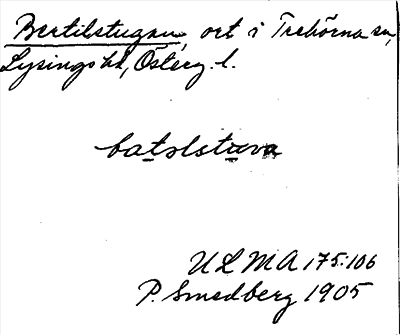 Bertilstugan, ort i Trehörna sn,
Lysings hd, Österg. l.
batslstuva
ULMA 175:106
P. Smedberg 1905